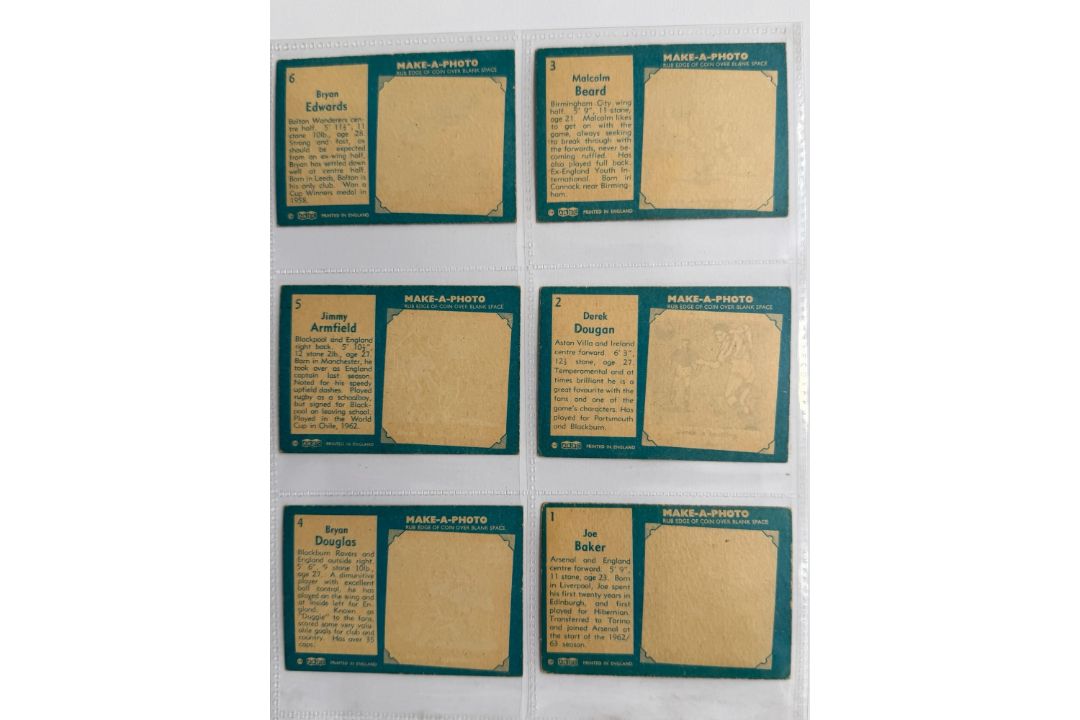 6
Bryan
Edwards
Bolton Wanderers cen-
tre half. 5' 11½", 11
stone 10lb., age 28.
Strong and fast, as
should be expected
from an ex-wing half,
Bryan has settled down
well at centre half.
Born in Leeds, Bolton is
his only club. Won a
Cup Winners medal in
1958.
MAKE-A-PHOTO
RUB EDGE OF COIN OVER BLANK SPACE
PRINTED IN ENGLAND
3
Malcolm
Beard
Birmingham City wing
half. 5' 9", 11 stone,
age 21. Malcolm likes
to get on with the
game, always seeking
to break through with
the forwards, never be-
coming ruffled. Has
also played full back.
Ex-England Youth In-
ternational. Born in
Cannock near Birming-
ham.
MAKE-A-PHOTO
RUB EDGE OF COIN OVER BLANK SPACE
A&BC PRINTED IN ENGLAND
5
Jimmy
Armfield
Blackpool and England
right back. 5' 10½",
12 stone 2lb., age 27.
Born in Manchester, he
took over as England
captain last season.
Noted for his speedy
upfield dashes. Played
rugby as a schoolboy,
but signed for Black-
pool on leaving school.
Played in the World
Cup in Chile, 1962.
MAKE-A-PHOTO
RUB EDGE OF COIN OVER BLANK SPACE
A&BC PRINTED IN ENGLAND
2
Derek
Dougan
Aston Villa and Ireland
centre forward. 6' 3",
12½ stone, age 27.
Temperamental and at
times brilliant he is a
great favourite with the
fans and one of the
game's characters. Has
played for Portsmouth
and Blackburn.
MAKE-A-PHOTO
RUB EDGE OF COIN OVER BLANK SPACE
A&BC PRINTED IN ENGLAND
4
Bryan
Douglas
Blackburn Rovers and
England outside right.
5' 6", 9 stone 10lb.,
age 27. A diminutive
player with excellent
ball control, he has
played on the wing and
at inside left for En-
gland. Known as
"Duggie" to the fans,
scored some very valu-
able goals for club and
country. Has over 35
caps.
MAKE-A-PHOTO
RUB EDGE OF COIN OVER BLANK SPACE
A&BC PRINTED IN ENGLAND
1
Joe
Baker
Arsenal and England
centre forward. 5' 9",
11 stone, age 23. Born
in Liverpool, Joe spent
his first twenty years in
Edinburgh, and first
played for Hibernian.
Transferred to Torino
and joined Arsenal at
the start of the 1962/
63 season.
MAKE-A-PHOTO
RUB EDGE OF COIN OVER BLANK SPACE
A&BC PRINTED IN ENGLAND